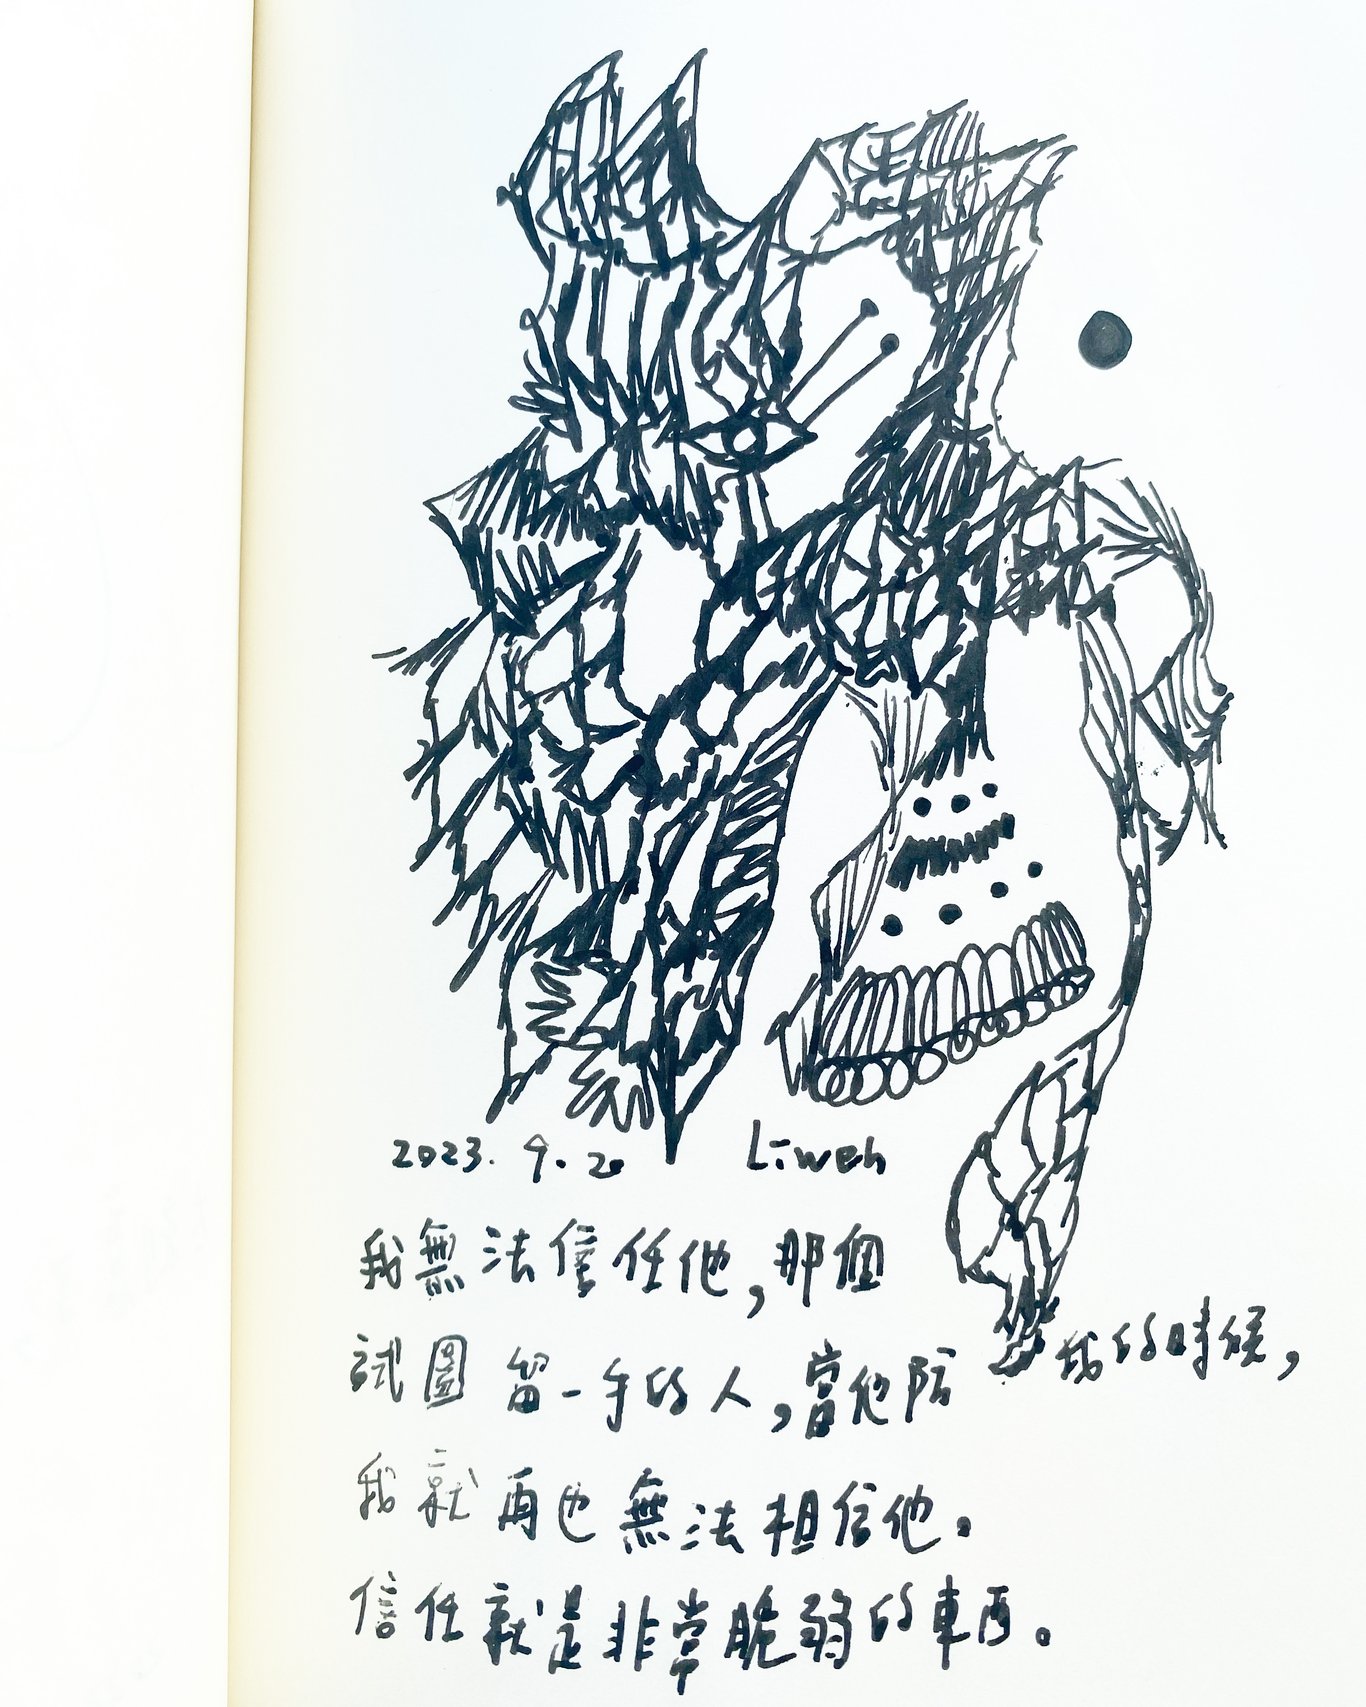 2023. 9. 20 Liweh
我無法信任他,那個
試圖留一手的人,當他防 我的時候,
我就再也無法相信他。
信任就是非常脆弱的東西。